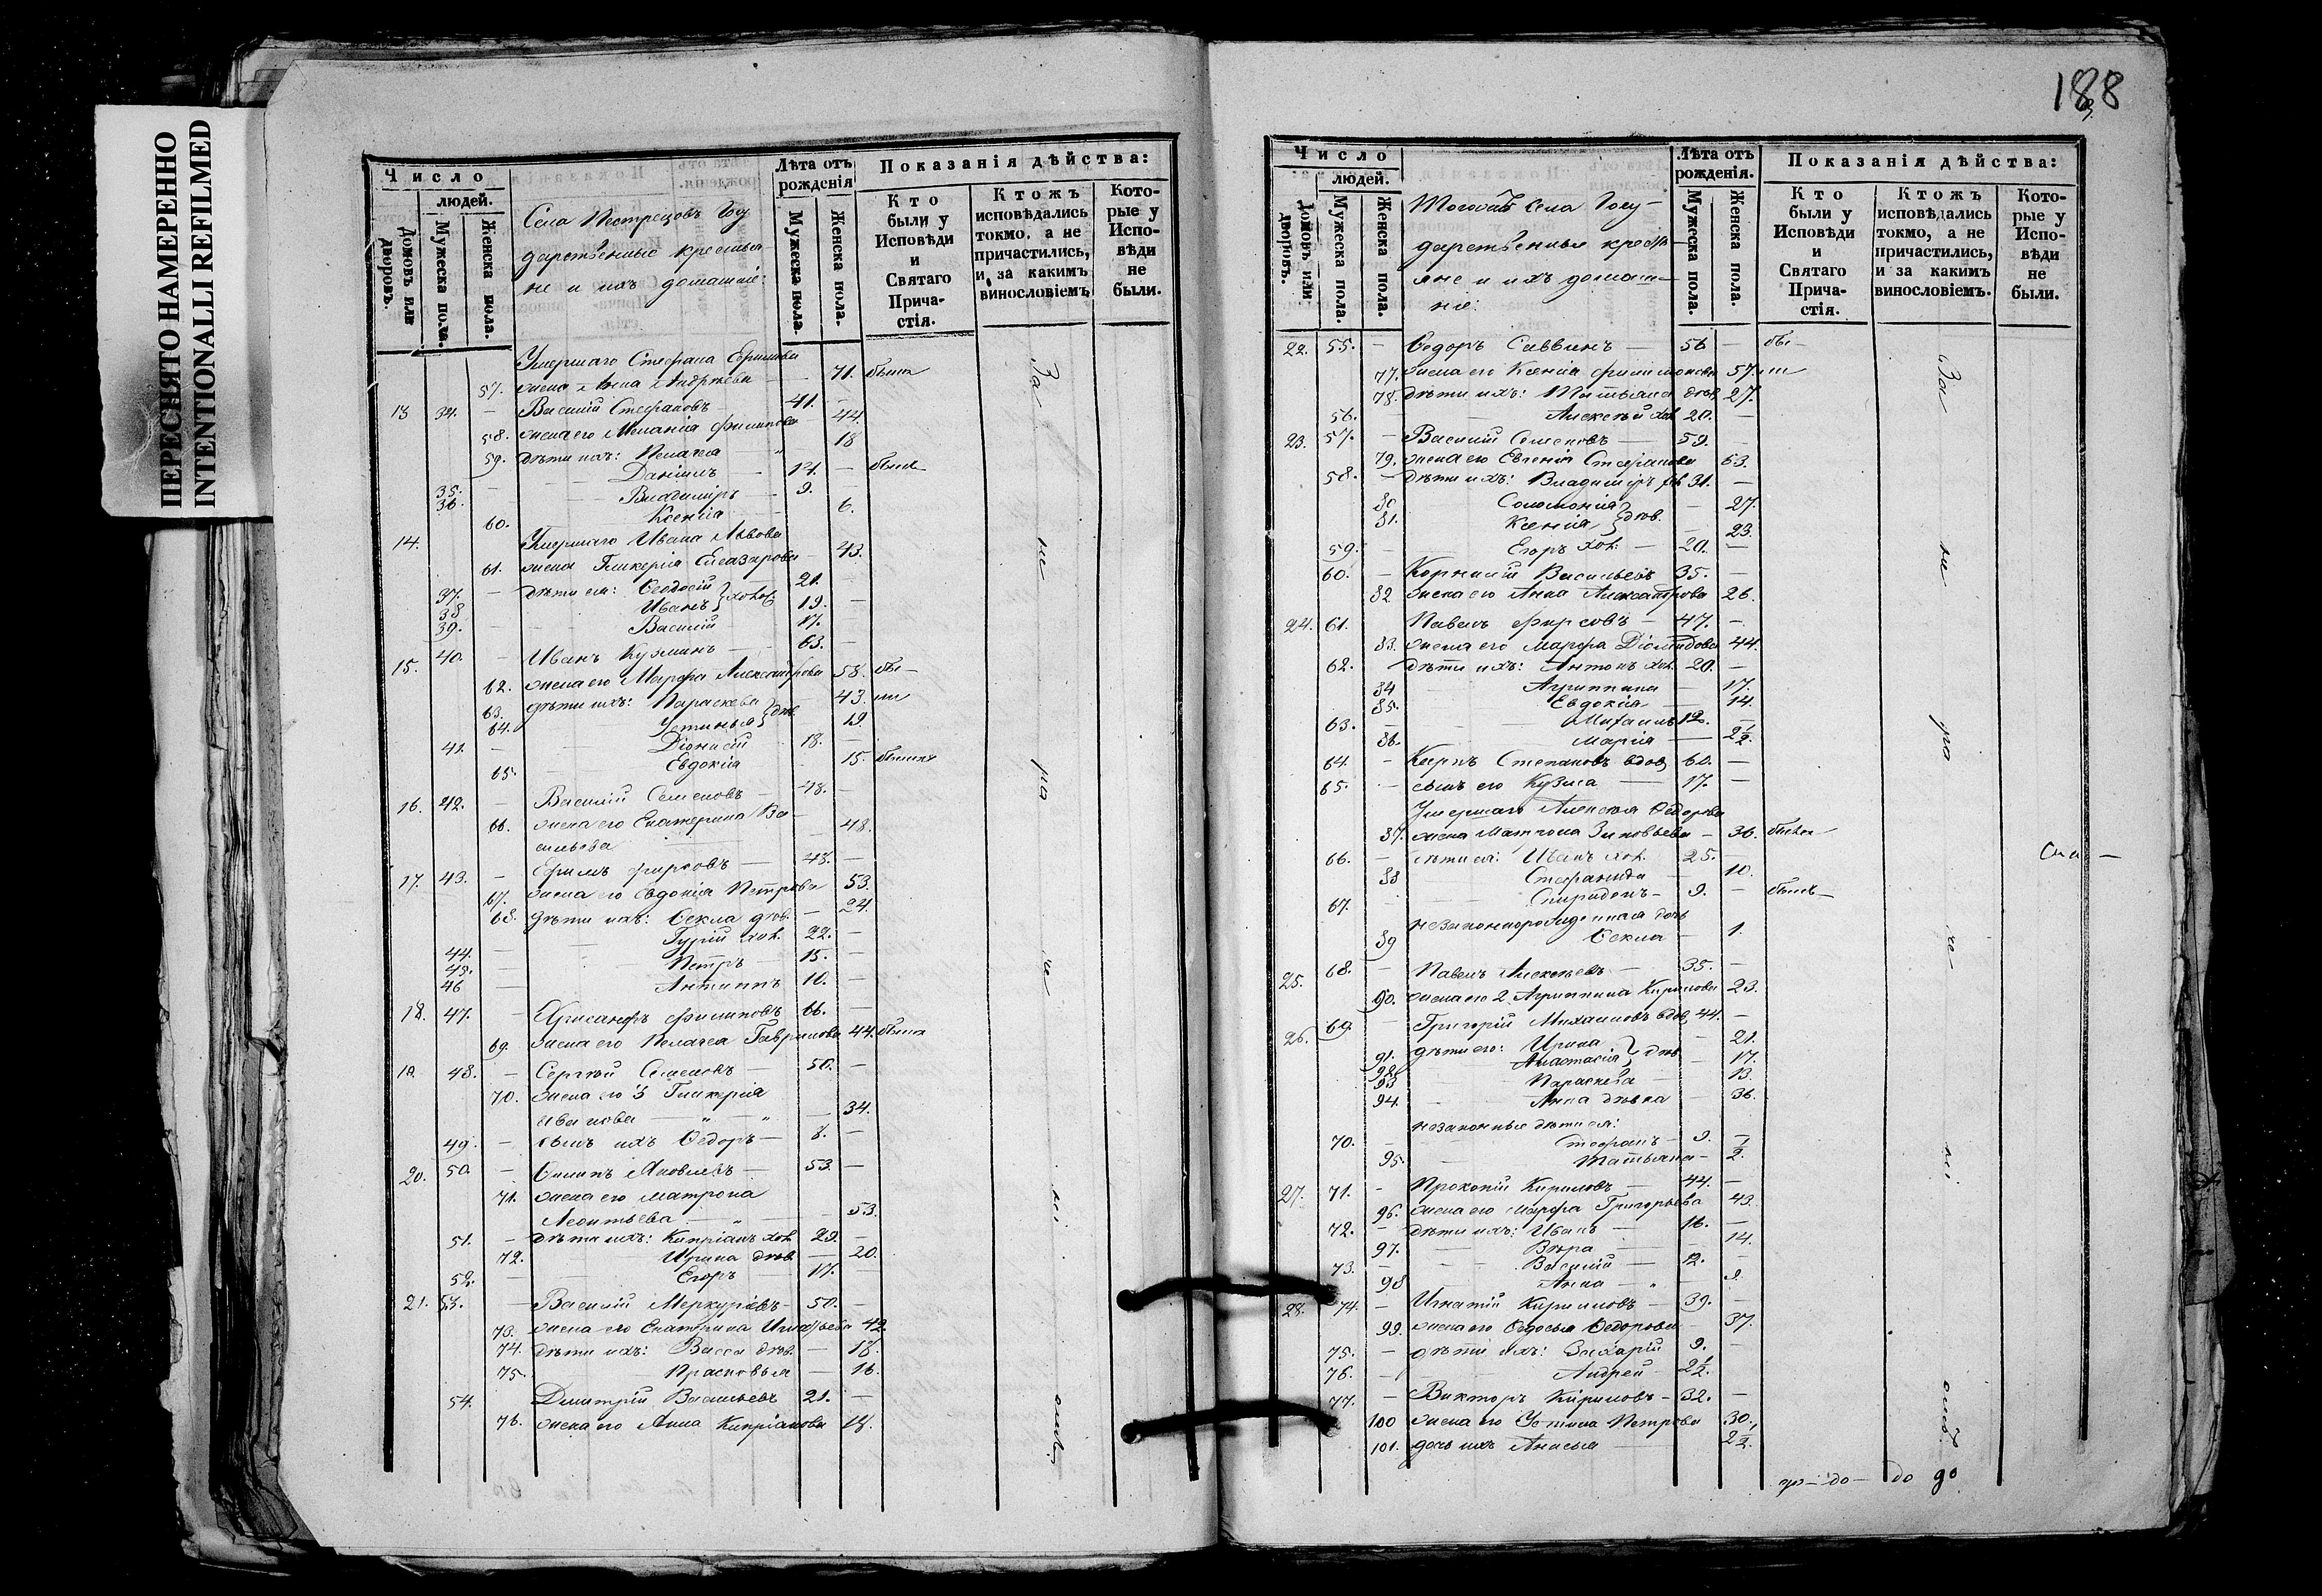 ПЕРЕСНЯТО НАМЕРЕННО
INTENTIONALLI REFILMED
Число
людей.
Домовъ или дворовъ.
Мужеска пола.
Женска пола.
Села Пестрецовъ Госу
дарственные крестья-
не и ихъ домашніе:
Лѣта отъ рожденія
Мужеска пола.
Женска пола.
Показанія дѣйства:
Кто были у Исповѣди и Святаго Причастія.
Ктожъ исповѣдались токмо, а не причастились, и за какимъ винословіемъ
Которые у Исповѣди не были.
Умершаго Стефана Ефимова
57. жена Анна Андреева 71. была
13 34. – Василій Стефановъ 41. –
58. жена его Меланія Филипова 44.
59. дѣти ихъ: Пелагея 18
35. – Даніилъ 12. – были
36. – Владиміръ 9. –
60. Ксенія 6.
14. Умершаго Ивана Львова
61. жена Гликерія Елеазарова 43.
37. – дѣти ея: Феодосій 21. –
38 Иванъ } хол. 19. –
39. – Василій 17. –
15. 40. – Иванъ Кузминъ 63. –
62. жена его Марфа Александрова 58. бы–
63. дѣти ихъ: Параскева 43. ли
64. Устинья } дѣв. 19.
41. – Діонисій 18. –
65. Евдокія 15.
16. 42. – Василій Семеновъ 48. –
66. жена его Екатерина Ва-
сильева 48.
17. 43. – Ефимъ Фирсовъ 48. –
67. жена его Евдокія Петрова 53.
68. дѣти ихъ: Фекла дѣв. – 24.
44. – Гурій хол. 22. –
45. – Петръ 15. –
46 – Антипъ 10. –
18. 47. – Хрисанфъ Филиповъ 66. –
69. жена его Пелагея Гаврилова 44. была
19. 48. – Сергѣй Семеновъ 50. –
70. жена его 3 Гликерія
Иванова 34.
49. – сынъ ихъ Федоръ 8. –
20. 50 – Филипъ Яковлевъ 53. –
71. жена его Матрона
Леонтьева 53.
51. – дѣти ихъ: Кипріанъ хол. 29. –
72. Ирина дѣв. – 20.
52. – Егоръ 17.
21. 53. – Василій Меркурьевъ 50. –
73. жена его Екатерина Игнатьева 42.
74. дѣти ихъ: Васса дѣв. – 18.
75. Прасковья – 16.
54. Дмитрій Васильевъ 21. –
76. жена его Анна Кипріанова 18.
За не ра че ні емъ
188
Число
людей.
Домовъ или дворовъ.
Мужеска пола.
Женска пола.
Тогожъ Села Госу-
дарственные крестья-
яне и ихъ домаш-
ніе:
Лѣта отъ рожденія.
Мужеска пола.
Женска пола.
Показанія дѣйства:
Кто были у Исповѣди и Святаго Причастія.
Ктожъ исповѣдались токмо, а не причастились, и за какимъ винословіемъ.
Которые у Исповѣди не были.
22. 55. – Федоръ Саввинъ 56 – бы–
77. жена его Ксенія Филимонова 57. ли
78. дѣти ихъ: Татьяна дѣв. 27.
56. Алексѣй хол. 20. –
23. 57. – Василій Семеновъ 59. –
79. жена его Евгенія Стефанова 63.
58. – дѣти ихъ: Владиміръ 31. –
80 Соломонія – 27.
81. Ксенія } дѣв. – 23.
59. – Егоръ хол. 20. –
60. – Корнилій Васильевъ 35. –
82 жена его Анна Александрова 26.
24. 61. Павелъ Фирсовъ 47. –
83. жена его Марфа Діомидова 44.
62. дѣти ихъ: Антонъ хол. 20. –
84 Агрипина 17.
85. Евдокія 14.
63. – Михаилъ 12. –
86. Марія 2½.
64. – Карпъ Степановъ вдов. 60. –
65. – сынъ его Кузма 17. –
Умершаго Алексѣя Федорова
87. жена Матрона Зиновьева 36. была
66. – дѣти ея: Иванъ хол. 25. –
88 Стефанида 10.
67. Спиридонъ 9. – былъ
незаконнорожденная дочь
89 Фекла 1.
25. 68. – Павелъ Алексѣевъ 35. –
90. жена его 2 Агрипина Кирилова 23.
26. 69 – Григорій Михаиловъ вдов. 44. –
91. дѣти его: Ирина – 21.
92 Анастасія } дѣв. – 17.
93 Параскева 13.
94. Анна дѣвка – 36.
незаконные дѣти ея:
70. – Стефанъ 9. –
95. Татьяна ½.
27. 71. – Прокопій Кириловъ 44. –
96. жена его Марфа Григорьева 43.
72. – дѣти ихъ: Иванъ 16. –
97. Вѣра 14.
73. – Василій 12. –
98 Анна 9.
28. 74. – Игнатій Кириловъ 39. –
99. жена его Федосья Федорова 37.
75. – дѣти ихъ: Захарій 9. –
76. – Андрей 2½.
77. – Викторъ Кириловъ 32. –
100 жена его Устина Петрова 30.
101. дочь ихъ Анасья 2½.
За не ра че ні емъ